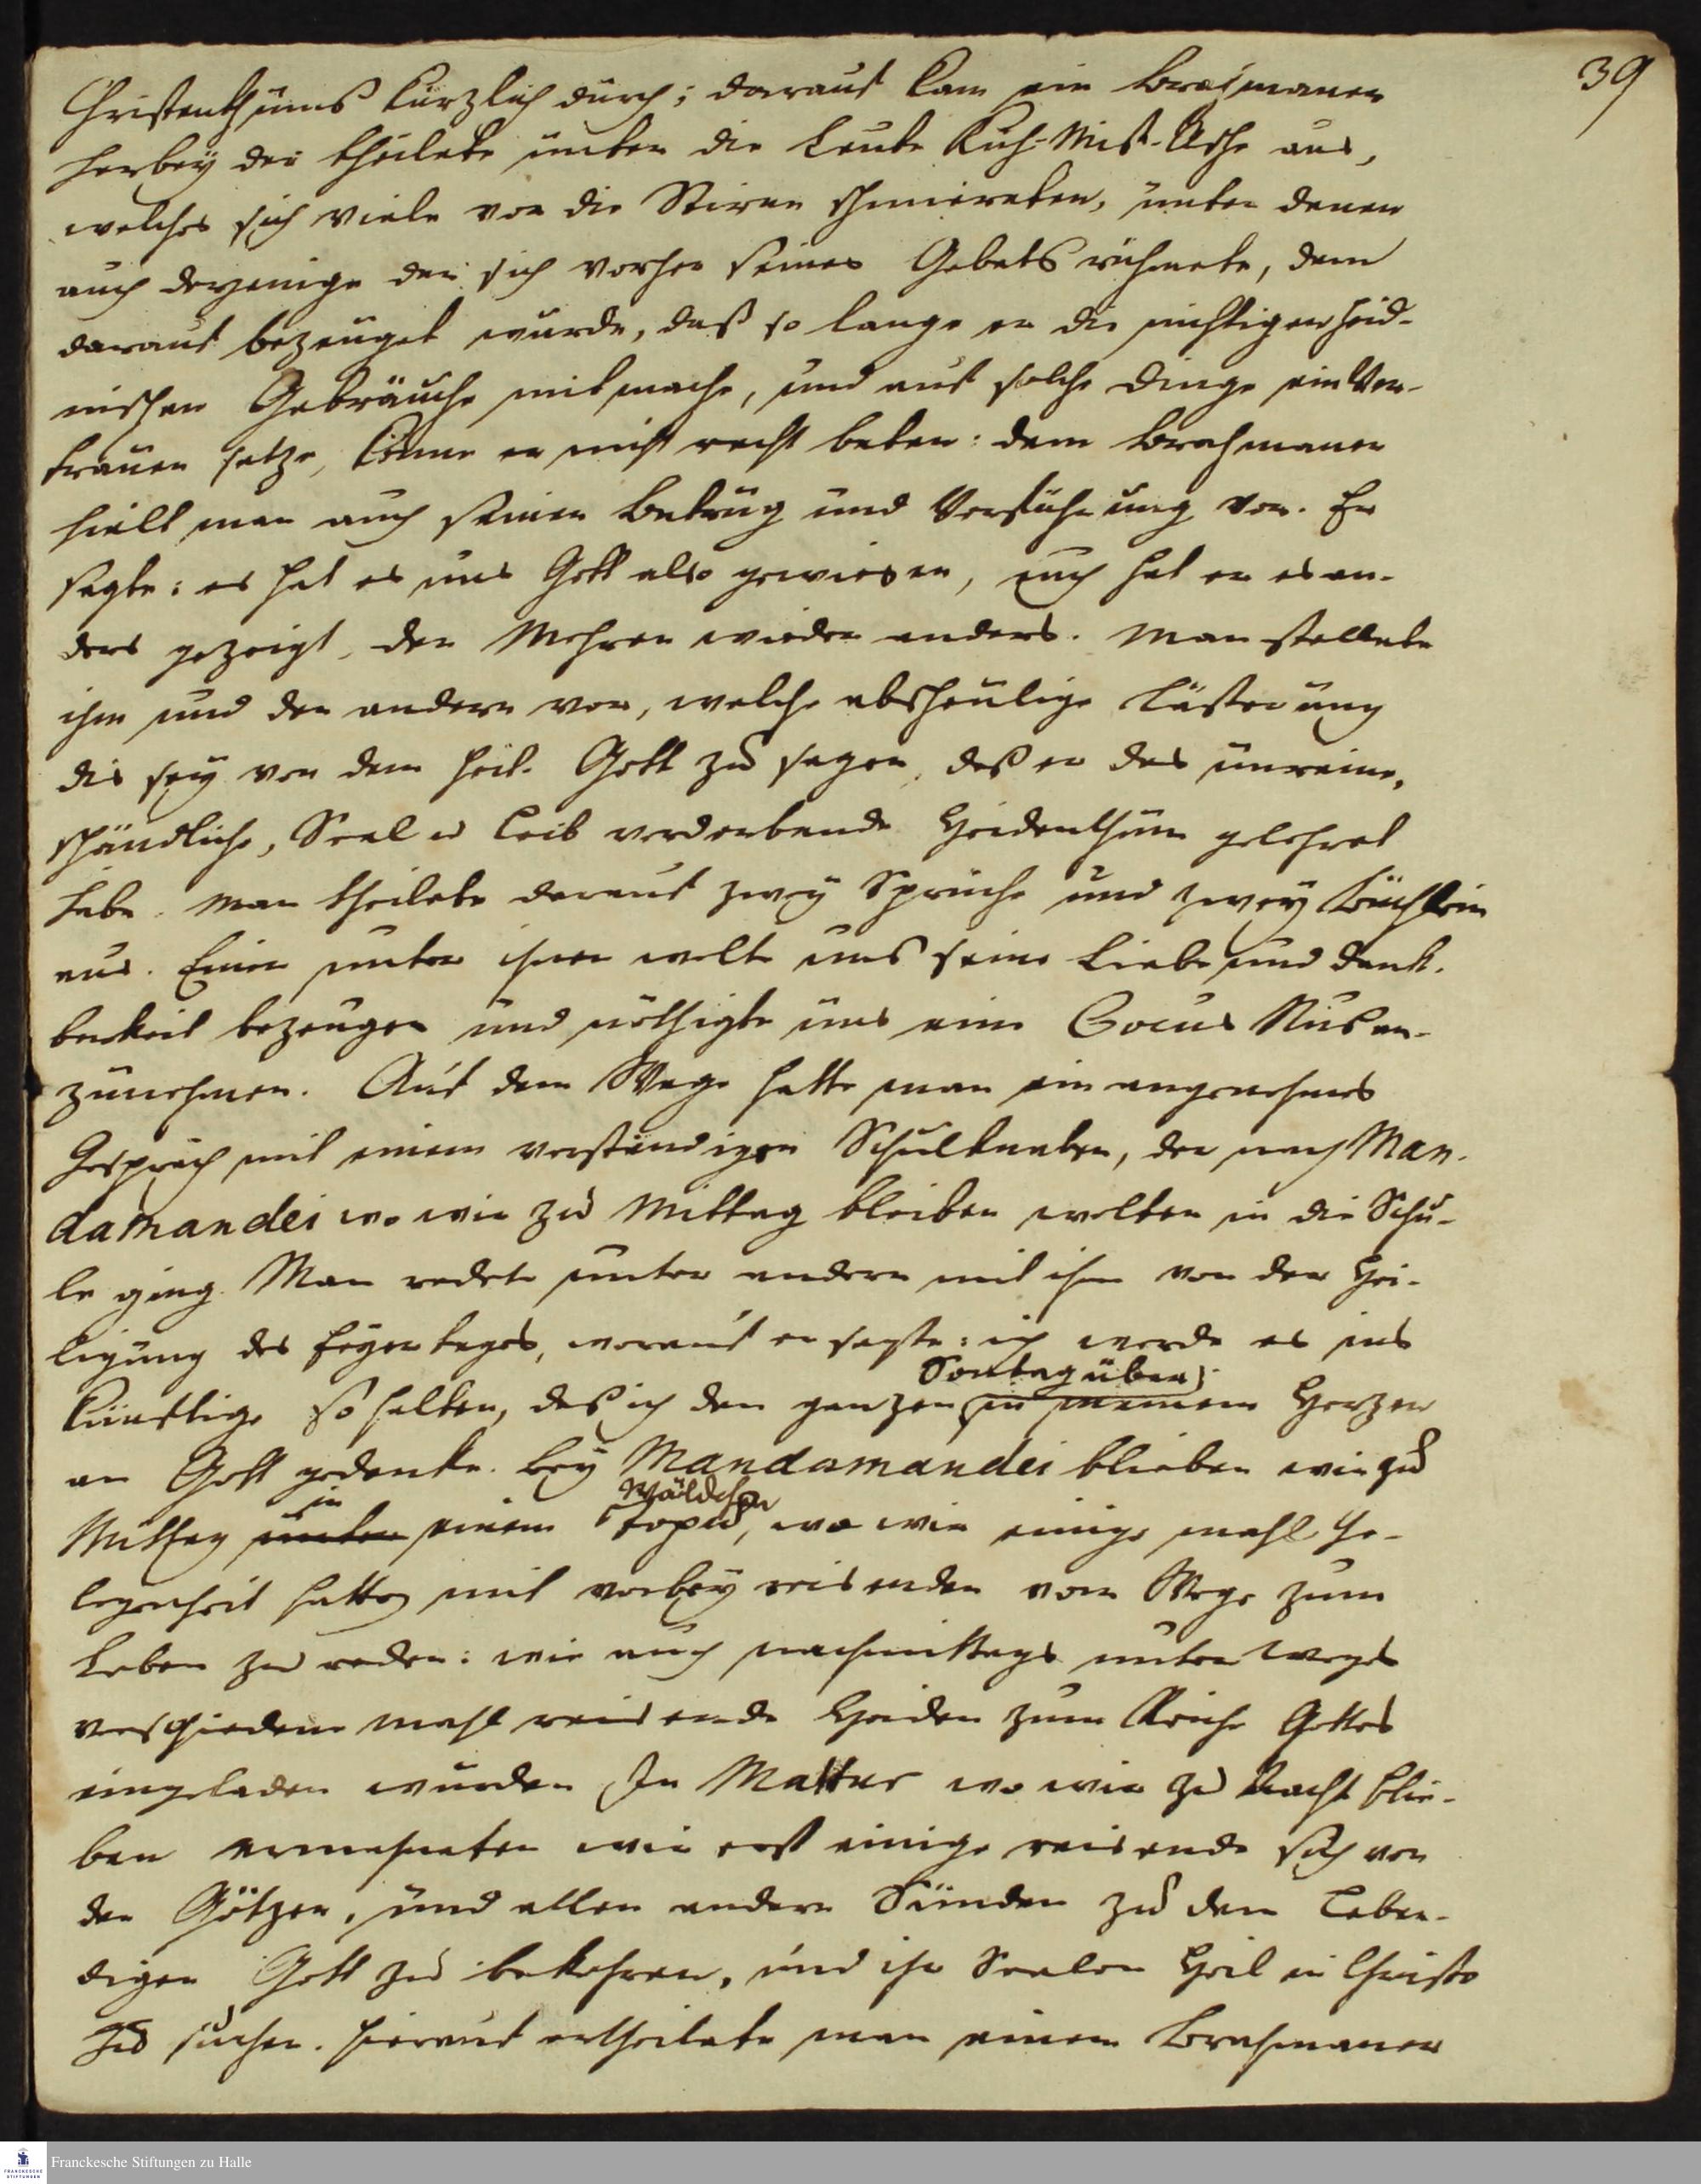 39
Christenthums kürzlich durch; darauf kam ein Brahmaner
herbey der theilete unter die Leute Kuh-Mist-Asche aus,
welches sich viele vor die Stirne schmiereten, unter denen
auch derjenige der sich vorher seines Gebets rühmete, dem
darauf bezeuget wurde, daß so lange er die nichtigen heid-
nischen Gebräuche mitmache, und auf solche Dinge ein Ver-
trauen setze, könne er nicht recht beten: dem Brahmaner
hielt man auch seinen Betrug und Verführung vor. Er
sagte: es hat es uns Gott also gewiesen, euch hat er es an-
ders gezeigt, den Mohren wieder anders. Man stellete
ihm und den andern vor, welche abscheulige Lästerung
dis sey von dem heil. Gott zu sagen, daß er das unreine,
schändliche, Seel u Leib verderbende Heidenthum gelehret
habe. Man theilete darauf zwey Sprüche und zwey Büchlein
aus. Einer unter ihnen wolte uns seine Liebe und Dank-
barkeit bezeugen und nöthigte uns eine Cocus Nus an-
zunehmen. Auf dem Wege hatte man ein angenehmes
Gespräch mit einem verständigen Schulknaben, der nach Man-
damandei wo wir zu Mittag bleiben wolten in die Schu-
le ging. Man redete unter andern mit ihm von der Hei-
ligung des Feyertages, worauf er sagte: ich werde es ins
Sontag über
künftige so halten, daß ich den ganzen in meinem Herzen
an Gott gedenke. Bey Mandamandei blieben wir zu
in Wäldchen
Mittag unter einem Topu, wo wir einige mahl Ge-
legenheit hatten mit vorbey reisenden vom Wege zum
Leben zu reden: wie auch nachmittags unter weges
verschiedene mahl reisende Heiden zum Reiche Gottes
eingeladen wurden. In Mattur wo wir zu Nacht blie-
ben ermahneten wir erst einige reisende sich von
den Götzen, und allen andern Sünden zu dem Leben-
digen Gott zu bekehren, und ihr Seelen Heil in Christo
zu suchen. Hierauf ertheilete man einem Brahmaner
Franckesche Stiftungen zu Halle